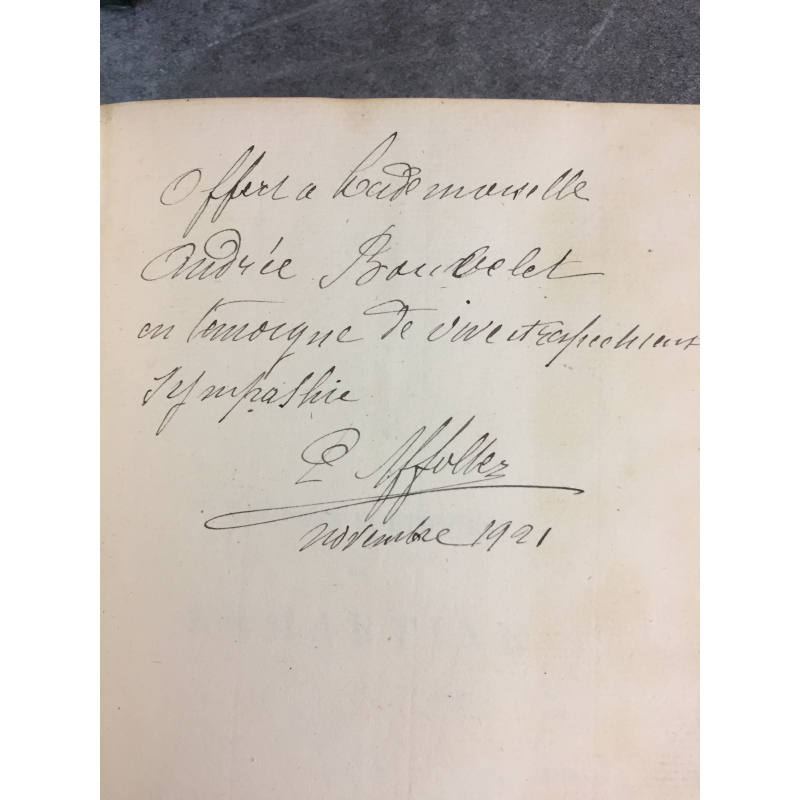 Offert a Mademoiselle
Andrée Bouvelet
en temoigne de vive et respectueuse
sympathie
P Affolter
novembre 1921